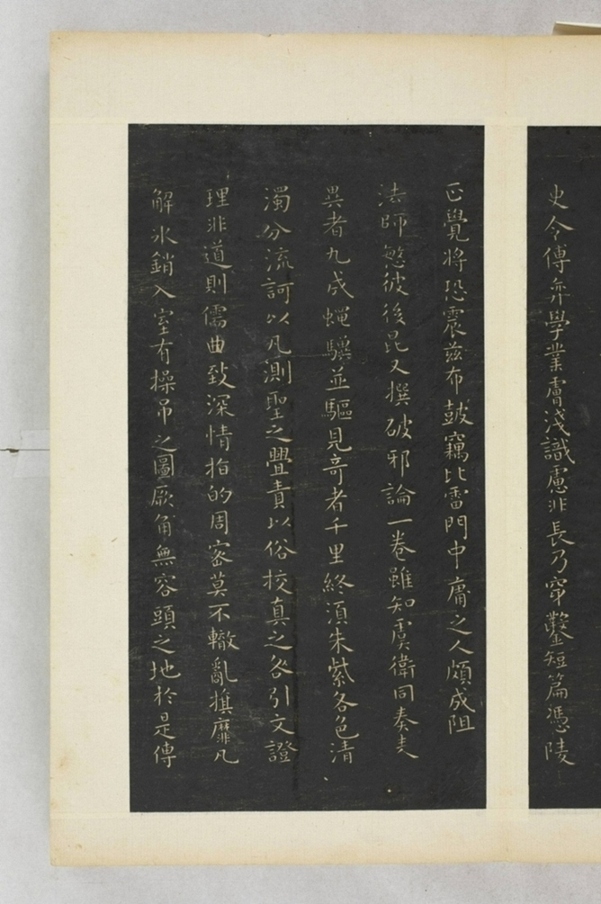 史令傅弈學業膚淺識慮非長乃穿鑿短篇憑陵
正覺將恐震茲布皷竊比雷門中庸之人頗成阻
法師愍彼後昆又撰破邪論一卷雖知虞衛同奏夫
異者九成蝇驥並驅見竒者千里終須朱紫各色清
濁分流訶以凡測聖之舋責以俗挍真之咎引文證
理非道則儒曲致深情指的周密莫不轍亂旗靡瓦
解氷銷入室有操吊之圖厥角無容頭之地於是傳